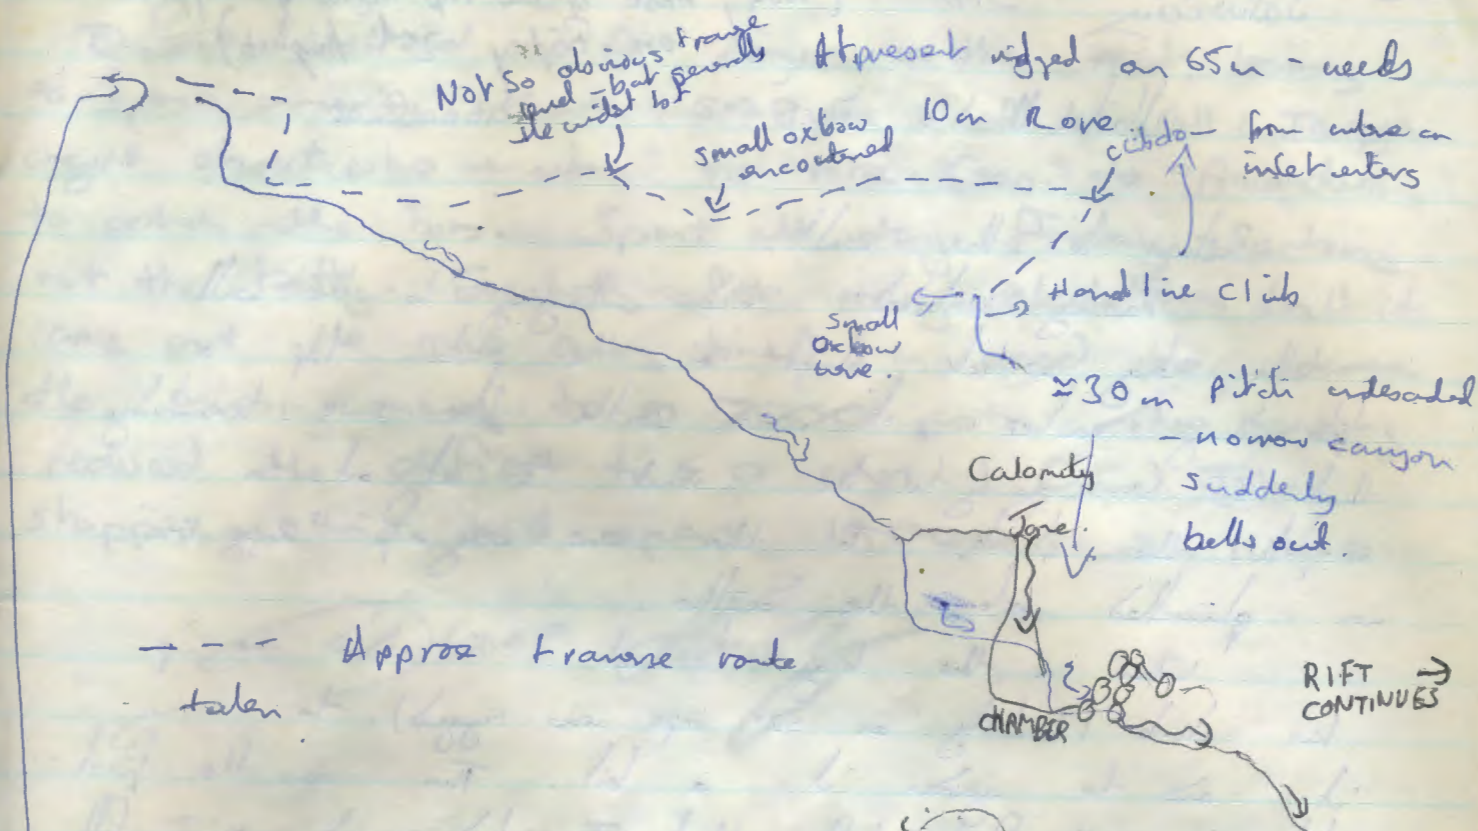 Not so obvious traverse
level - but generally
the widest bit
At present rigged on 65m - needs
10m Rope
small oxbow
encountered
climb up - from where an
inlet enters
Handline climb
small
oxbow
here.
≈30m pitch undescended
- narrow canyon
suddenly
bells out.
Calamity
Jane.
--- Approx traverse route
taken
CHAMBER
RIFT
CONTINUES